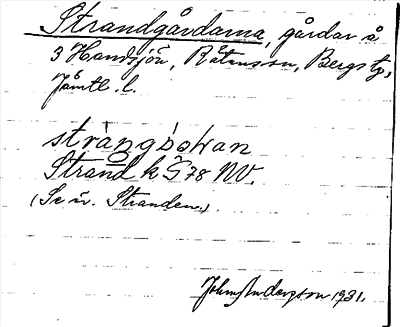 Strandgårdarna, gårdar å
3 Handsjön, Rätansson, Bergs tg,
Jämtl. l.
strångbohan
Strand k G 78 NV.
(Se u. Stranden.)
John Anderzson 1931.